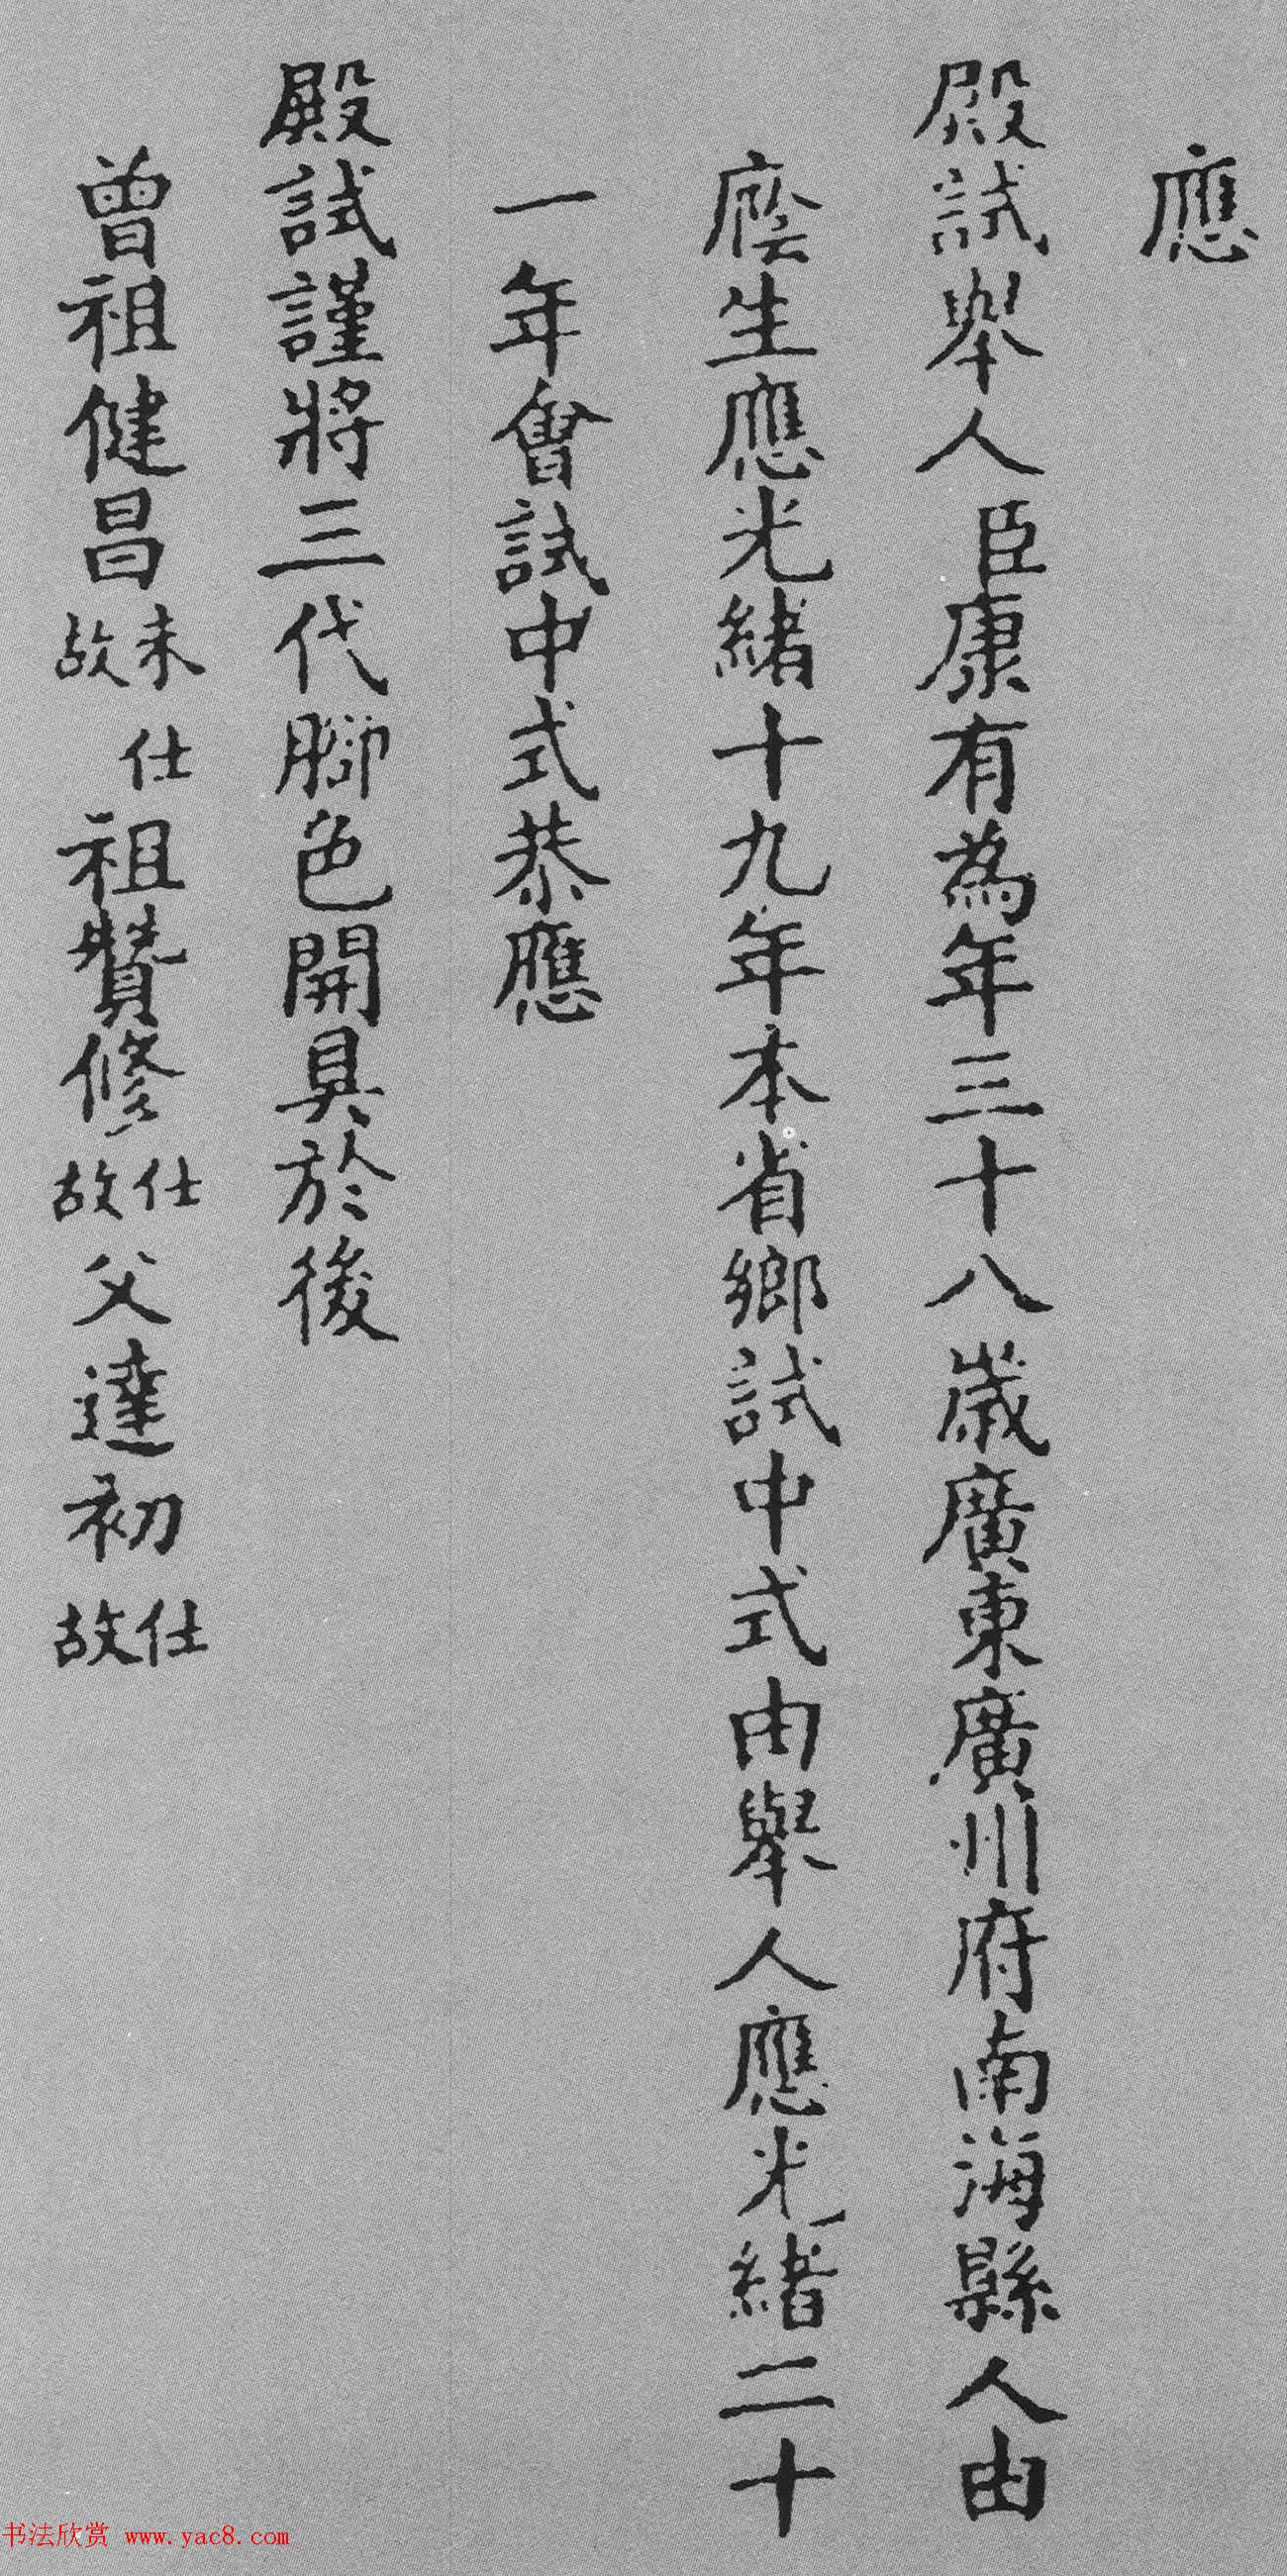 應
殿試舉人臣康有為年三十八歲廣東廣州府南海縣人由
廕生應光緒十九年本省鄉試中式由舉人應光緒二十
一年會試中式恭應
殿試謹將三代腳色開具於後
曾祖健昌未仕故祖贊修仕故父達初仕故
书法欣赏 www.yac8.com